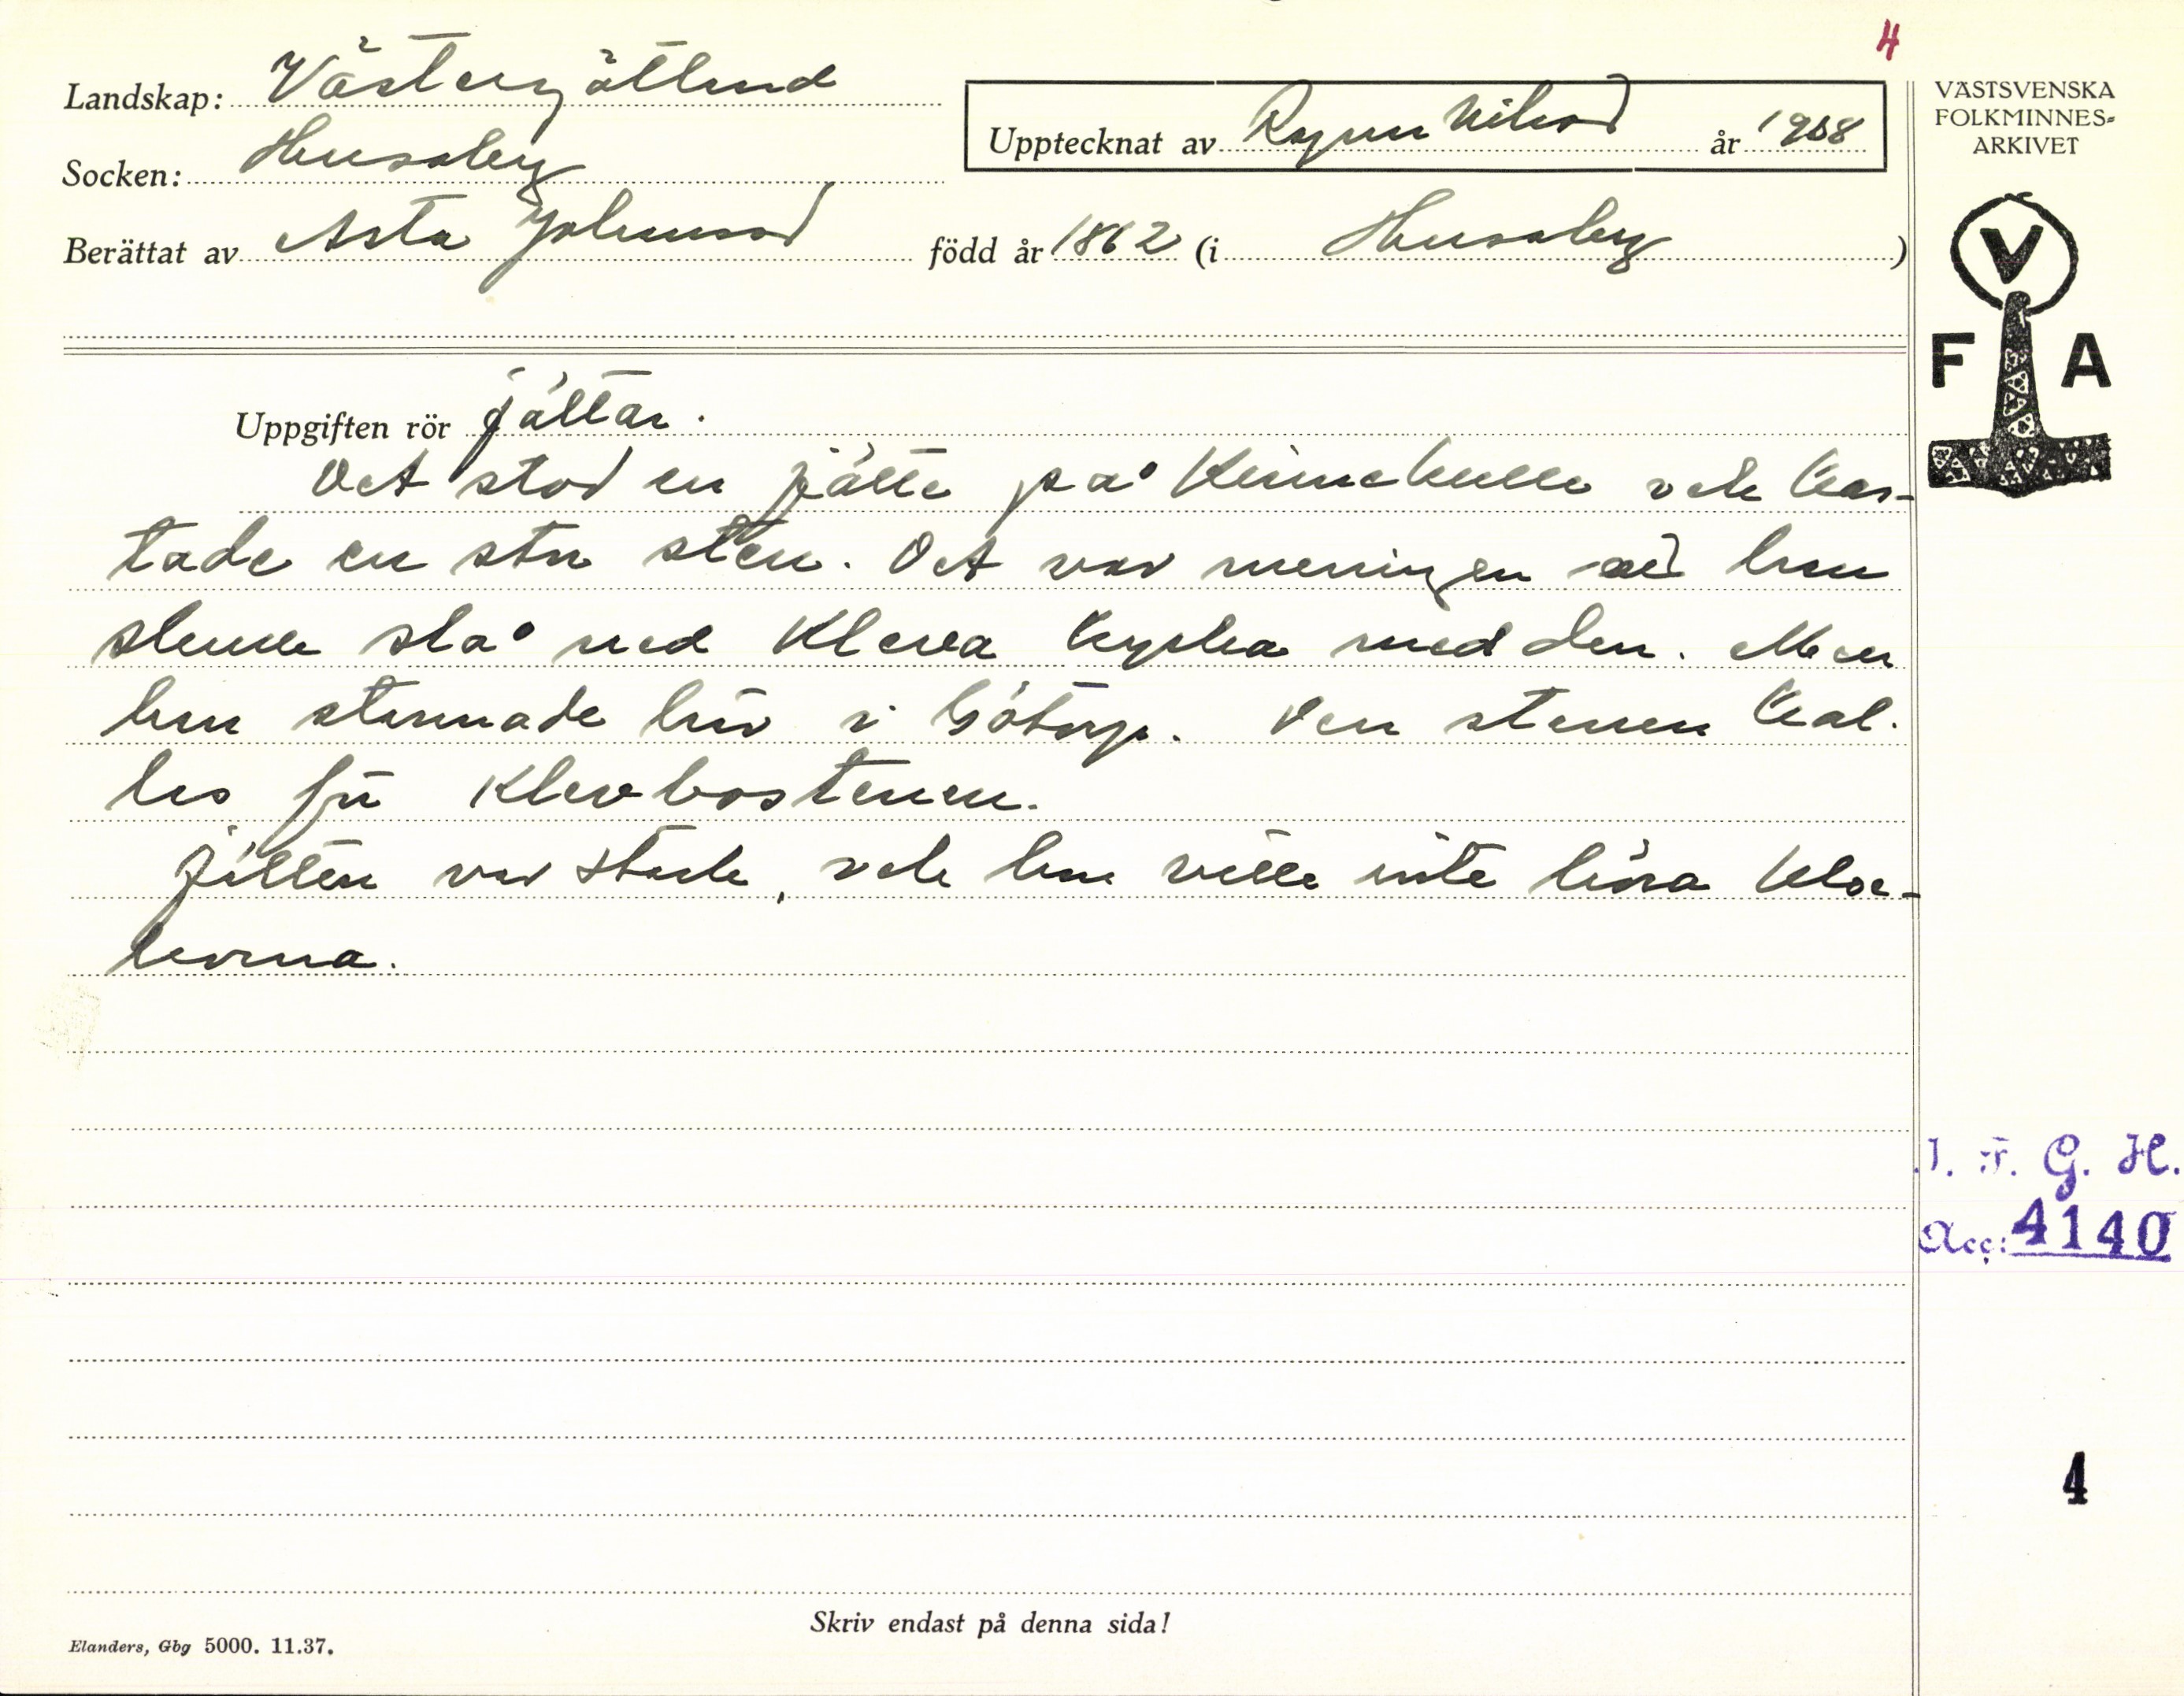 4
Landskap: Västergötland
Upptecknat av Ragnar Nilsson år 1938
VÄSTSVENSKA
FOLKMINNES-
ARKIVET
Socken: Husaby
Berättat av Asta Johansson född år 1862 (i Husaby)
V
F A
Uppgiften rör jättar.
Det stod en jätte på Kinnekulle och kas-
tade en stor sten. Det var meningen att han
skulle slå ned Kleva kyrka med den. Men
han stannade här i Götorp. Den stenen kal-
las för Klevbostenen.
Jätten var stark, och han ville inte höra kloc-
korna.
I. F. G. H.
Acc: 4140
4
Skriv endast på denna sida!
Elanders, Gbg 5000. 11.37.